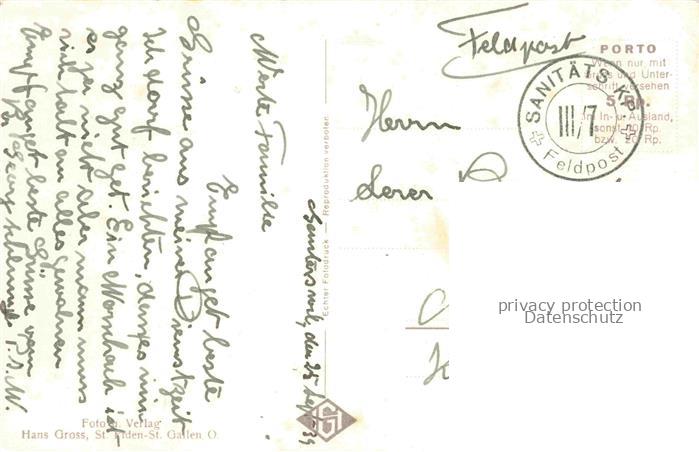 Feldpost
PORTO
Wenn nur mit
Gruss und Unter-
schrift versehen
5 Rp.
im In- u. Ausland,
sonst 10 Rp.
bzw. 20 Rp.
SANITÄTS-Kp.
III/7
Feldpost
Herrn
den 25 Sept. 39
Werte Familie
Empfanget beste
Grüsse aus meiner Dienstzeit
Ich darf berichten, dass es mir
ganz gut get. Ein
es ja nicht aber man muss
sich halt an alles gewöhnen
Empfanget beste Grüsse von
Echter Fotodruck — Reproduktion verboten
Foto u. Verlag
Hans Gross, St. Fiden-St. Gallen O.
G
privacy protection
Datenschutz